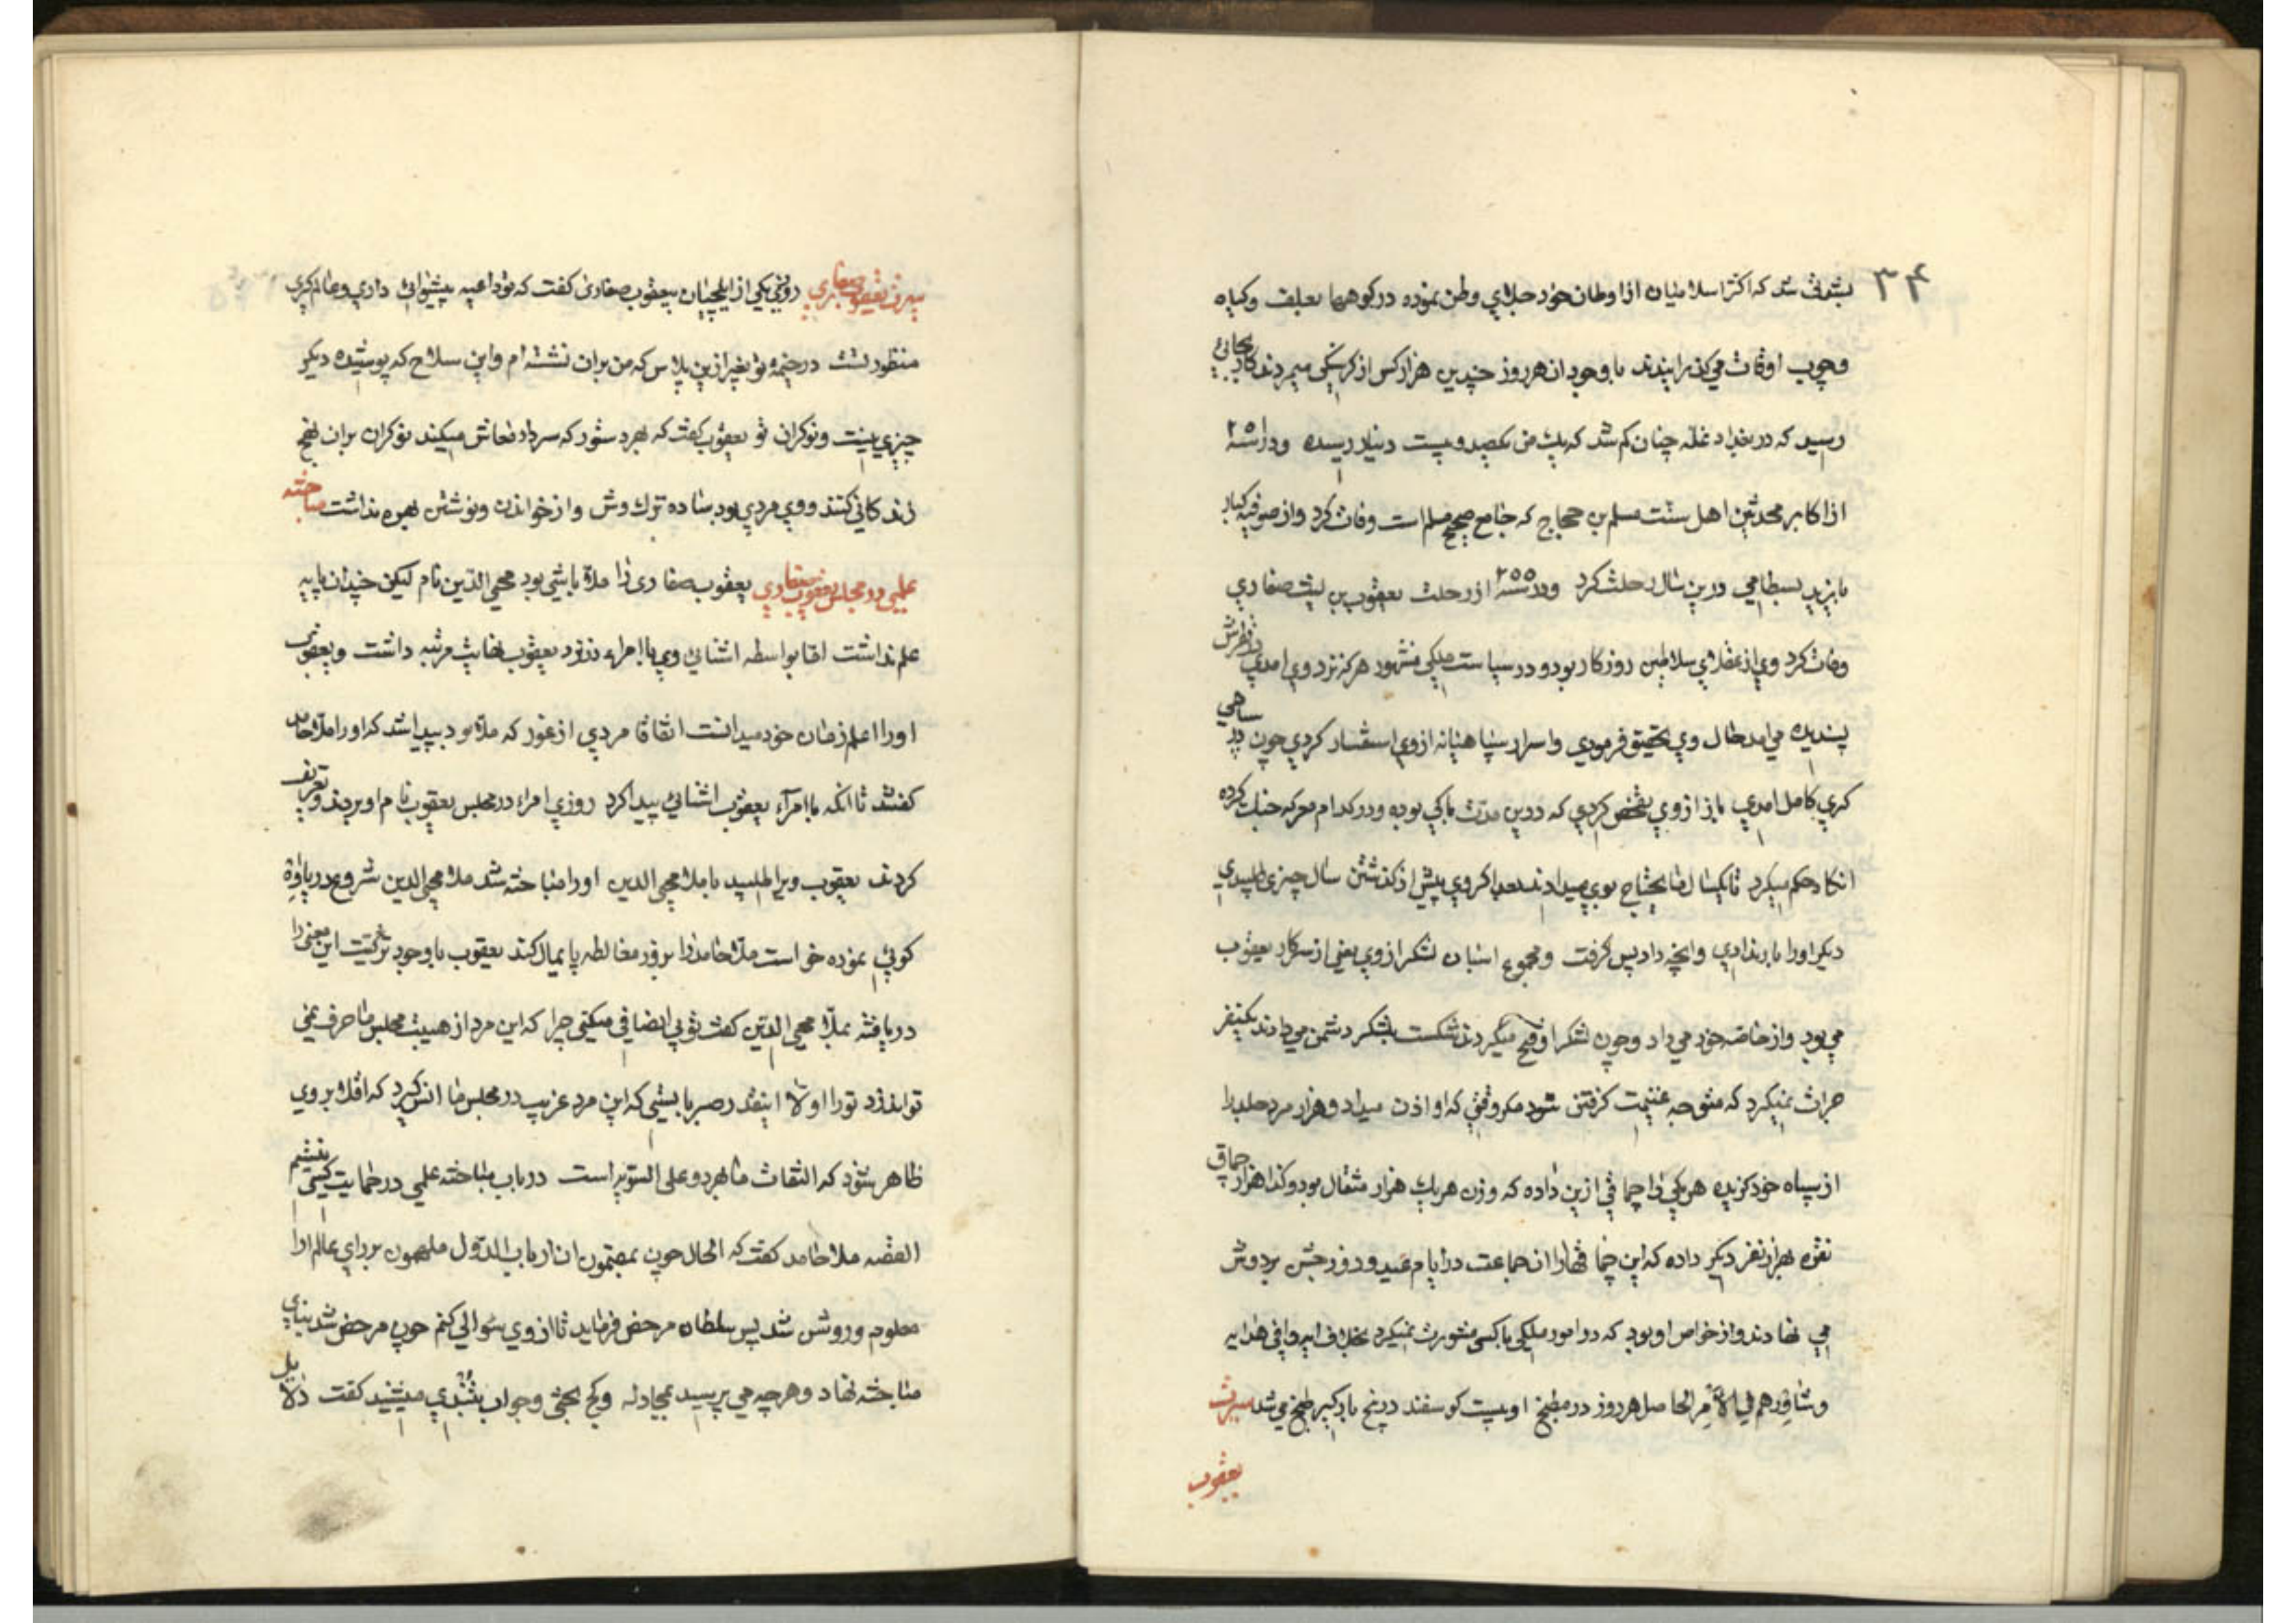 ۳۴
بشدتی شد که اکثر اسلامیان از اوطان خود جلای وطن نموده در کوهها بعلف وکیاه
وچوب اوقات می‌کذرانیدند با وجود ان هر روز چندین هزار کس از کرسنکی میمردند کار بجائی
رسید که در بغداد غله چنان کم شد که یک من یکصد و بیست دینار رسیده ودر سنه ۲۵۱
از اکابر محدثین اهل سنت مسلم بن حجاج که جامع صحیح مسلم است وفات کرد واز صوفیه کبار
بایزید بسطامی درین سال رحلت کرد ودر سنه ۲۵۵ از رحلت یعقوب بن لیث صفاری
وفات کرد وی از عقلای سلاطین روزکار بود و در سیاست ملکی مشهور هرکه نزد وی امدی در نظرش
پسندیده می امد بحال وی تحقیق فرمودی واسرار سپاهیانه از وی استفسار کردی چون در سپاهی
کری کامل امدی باز از وی تفحص کردی که درین مدت با کی بوده ودر کدام معرکه جنک کرده
انکاه حکم میکرد تا یکسال ما یحتاج بوی میدادند بعد اکر وی پیش از کذشتن سال چیزی طلبیدی
دیکر او را بار ندادی وانچه داد پس کرفت ومجموع اسبان لشکر از وی یعنی از سرکار یعقوب
می بود واز خاصه خود می داد وچون لشکر او فتح میکردند شکست بلشکر دشمن می دادند یکنفر
جرات نمیکرد که متوجه غنیمت کرفتن شود مکر وقتی که او اذن میداد و هزار مرد جلد را
از سپاه خود کزیده هر یکی را چماقی از زین داده که وزن هر یک هزار مثقال بود وکذا هزار چماق
نقره بهزار نفر دیکر داده که این چماقهارا ان جماعت در ایام عید و روز جشن بر دوش
می نهادند واز خواص او بود که در امور ملکی با کسی مشورت نمیکرد بخلاف ایه وافی هدایه
وشاورهم فی الامر الحاصل هر روز در مطبخ او بیست کوسفند در پنج دیک کبیر طبخ می شد سیرت
یعقوب
سیرت یعقوب صفاری روزی یکی از ایلچیان بیعقوب صفاری کفت که تو داعیه پیشوائی داری وعالم کیری
منظور تست در خیمه تو بغیر ازین پلاس که من بران نشسته ام واین سلاح که پوشیده دیکر
چیزی نیست ونوکران تو یعقوب کفت که بهر دستور که سردار معاش میکند نوکران بران نهج
زندکانی کنند ووی مردی بود ساده ترک وش واز خواندن ونوشتن بهره نداشت مباحثه
علمی در مجلس یعقوب صفاری یعقوب صفاری را ملا باشی بود محیی الدین نام لیکن چندان پایه
علم نداشت اما بواسطه اشنائی وی با امراء نزد یعقوب بغایت مرتبه داشت ویعقوب نیز
او را اعلم زمان خود میدانست اتفاقا مردی از غور که ملا بود پیدا شد که او را ملا حامد
کفتند تا انکه با امراء یعقوب اشنائی پیدا کرد روزی امراء در مجلس یعقوب نام او بردند وتعریف
کردند یعقوب ویرا طلبید با ملا محیی الدین او را مباحثه شد ملا محیی الدین شروع در یاوه
کوئی نموده خواست ملا حامد را بزور مغالطه پایمال کند یعقوب باوجود ترکیت این معنی را
دریافته بملا محیی الدین کفت تو بی انصافی میکنی چرا که این مرد از هیبت مجلس ما حرف نمی
تواند زد تو را اولا اینقدر صبر بایستی که این مرد غریب در مجلس ما انس کیرد که اقلا بر وی
ظاهر شود که التفات ما بهر دو علی السویه است در باب مباحثه علمی در حمایت کسی نیستیم
القصه ملا حامد کفت که الحال چون بمضمون ان ارباب الدول ملهمون بر رای عالم ارا
معلوم و روشن شد پس سلطان مرخص فرماید تا از وی سوالی کنم چون مرخص شد بنای
مباحثه نهاد وهرچه می پرسید بمجادله وکج بحثی وجواب بتندی میشنید کفت دلایل